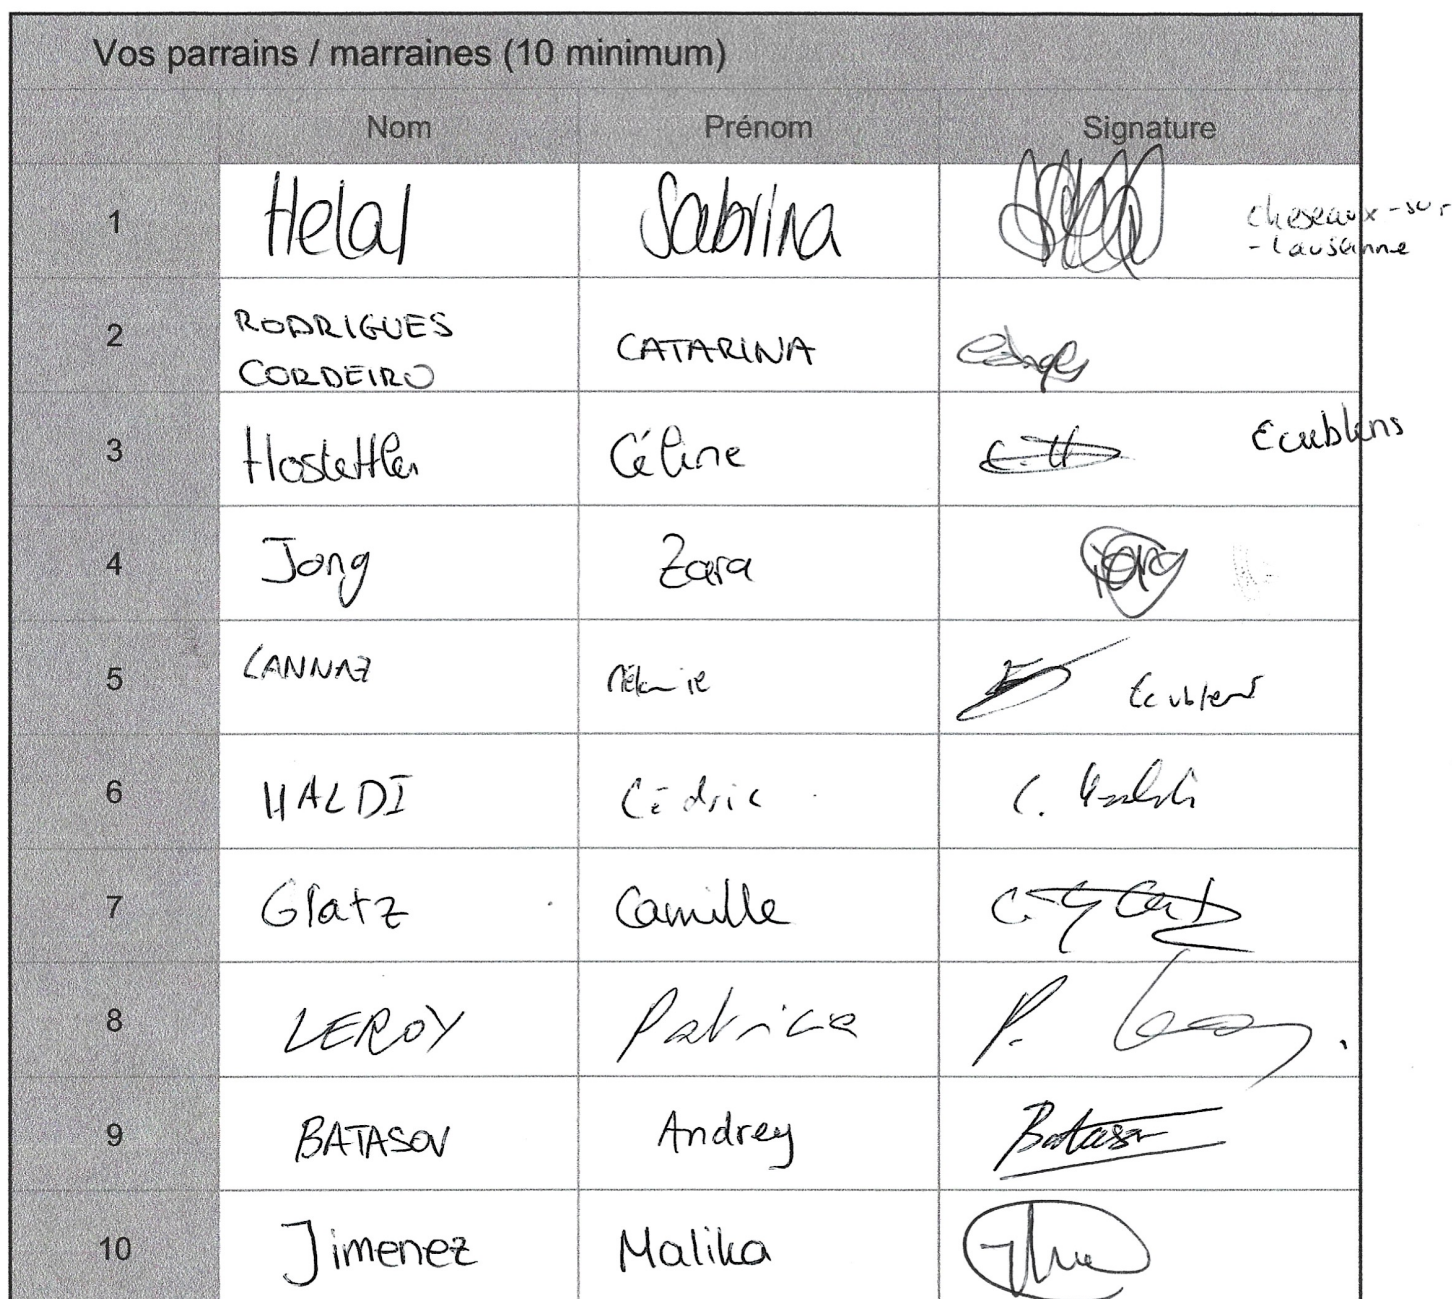 Vos parrains / marraines (10 minimum)
Nom Prénom Signature
1 Helal Sabrina cheseaux-sur-
-lausanne
2 RODRIGUES
CORDEIRO CATARINA
3 Hostettler Céline C.H Ecublens
4 Jong Zara
5 LANNAZ Mélanie Ecublens
6 HALDI Cédric C. Haldi
7 Glatz Camille
8 LEROY Patricia P. Leroy
9 BATASOV Andrey Batasov
10 Jimenez Malika